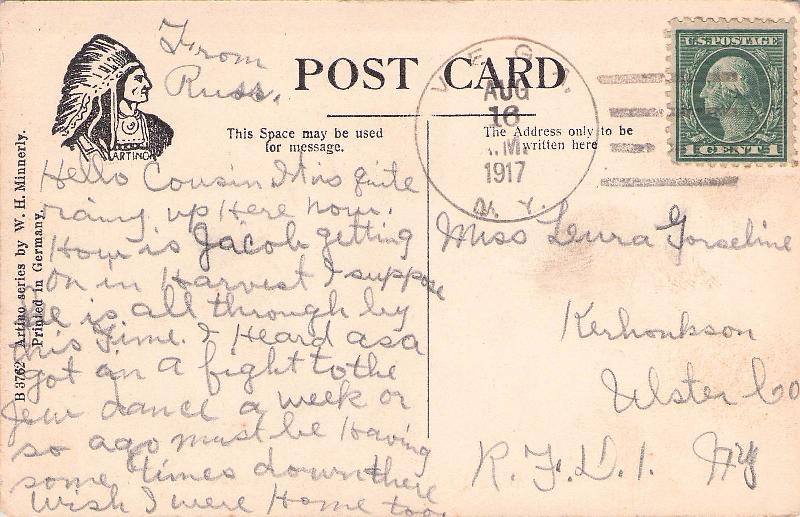 From
Russ.
POST CARD
V E G A.
AUG
16
.M.
1917
N. Y.
U.S. POSTAGE
1 CENT 1
ARTINO
This Space may be used
for message.
The Address only to be
written here
B 3762 Artino series by W. H. Minnerly.
Printed in Germany.
Hello Cousin It is quite
rainy up Here now.
How is Jacob getting
on in Harvest I suppose
He is all through by
this Time. I Heard asa
got in A fight to the
Jew dance a week or
so ago must be Having
some times down there
Wish I were Home too.
Miss Lura Gorseline
Kerhonkson
Ulster Co
R. F. D. 1. NY